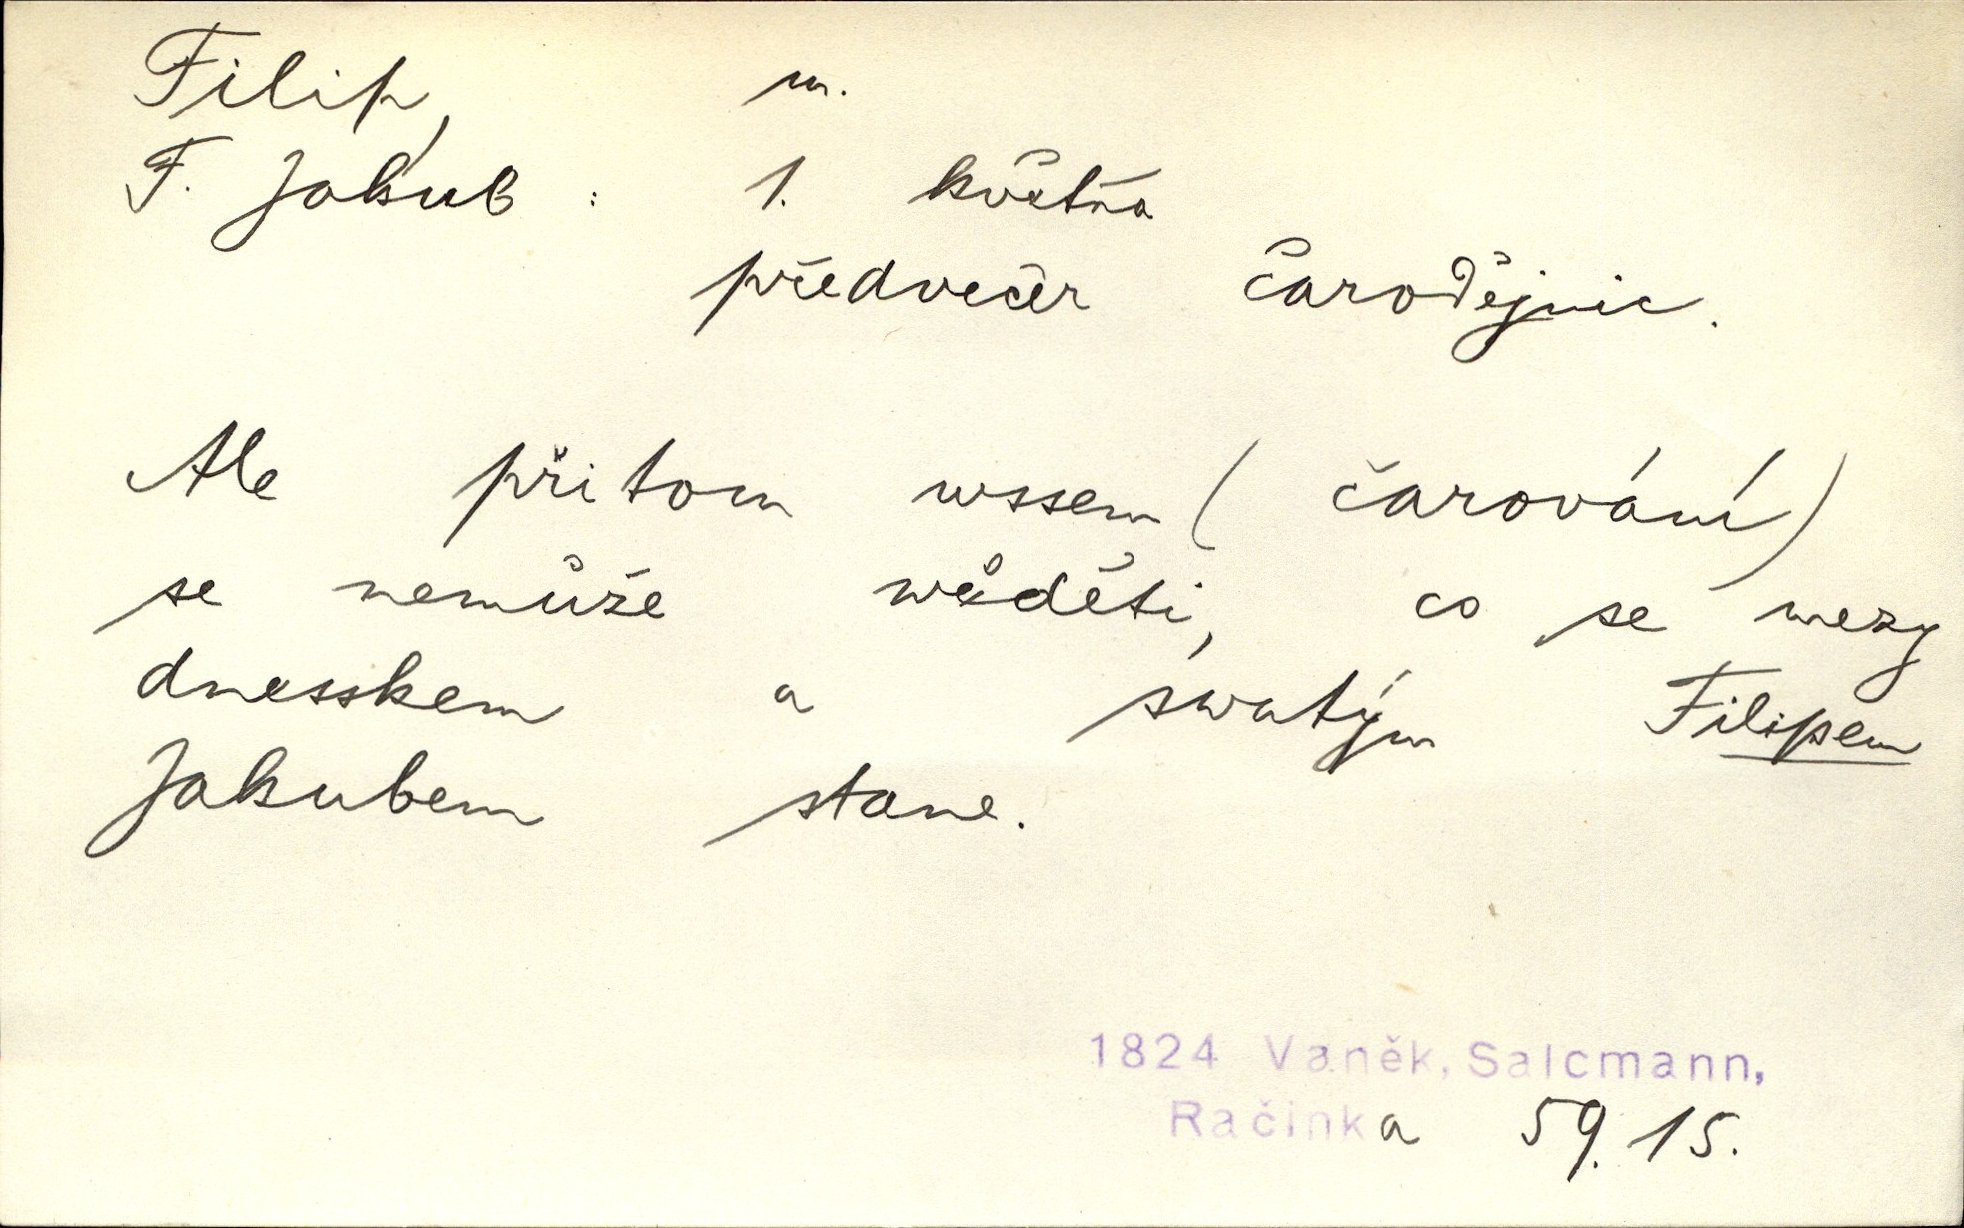 Filip, m.
F. Jakub : 1. května
předvečer čarodějnic.
Ale přitom wssem (čarování)
se nemůže wěděti, co se mezy
dnesskem a swatým Filipem
Jakubem stane.
1824 Vaněk, Salcmann,
Račinka 59. 15.